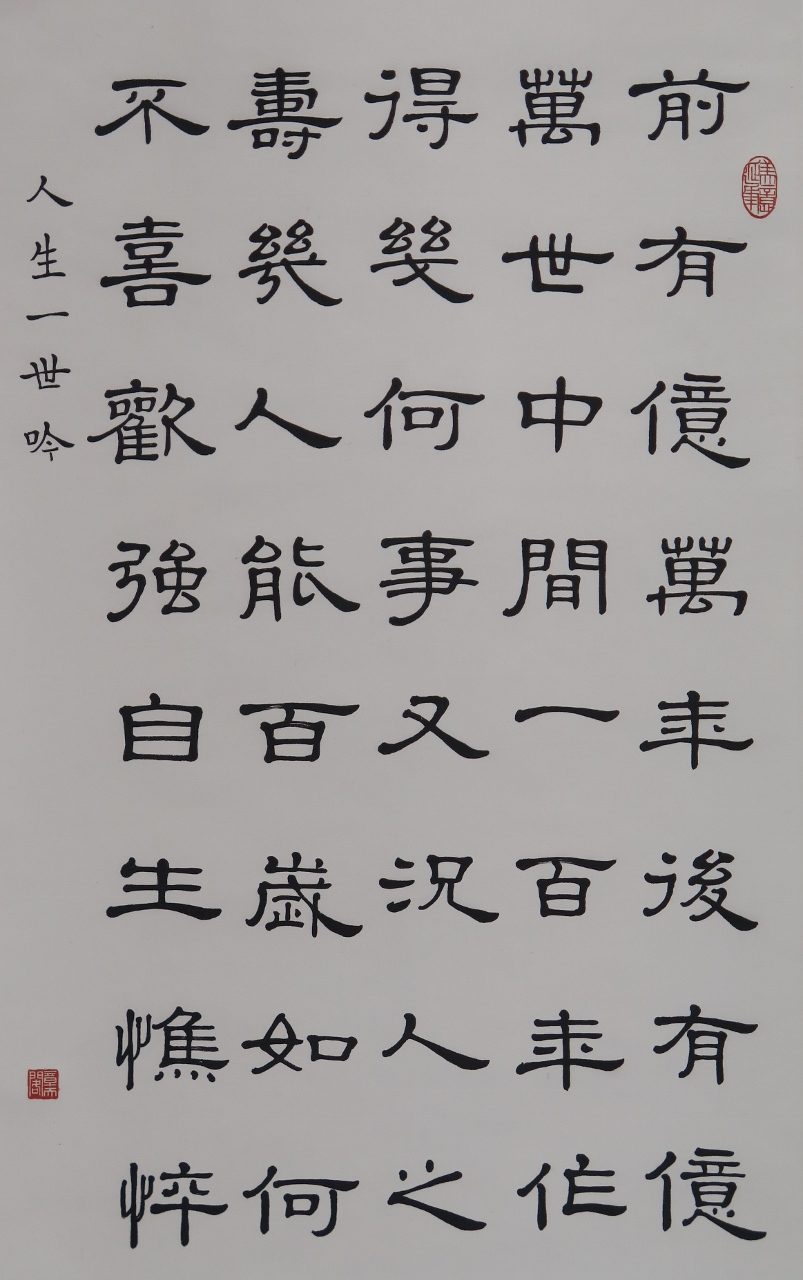 前有億萬年後有億
萬世中間一百年作
得幾何事又況人之
壽幾人能百歲如何
不喜歡強自生憔悴
人生一世吟